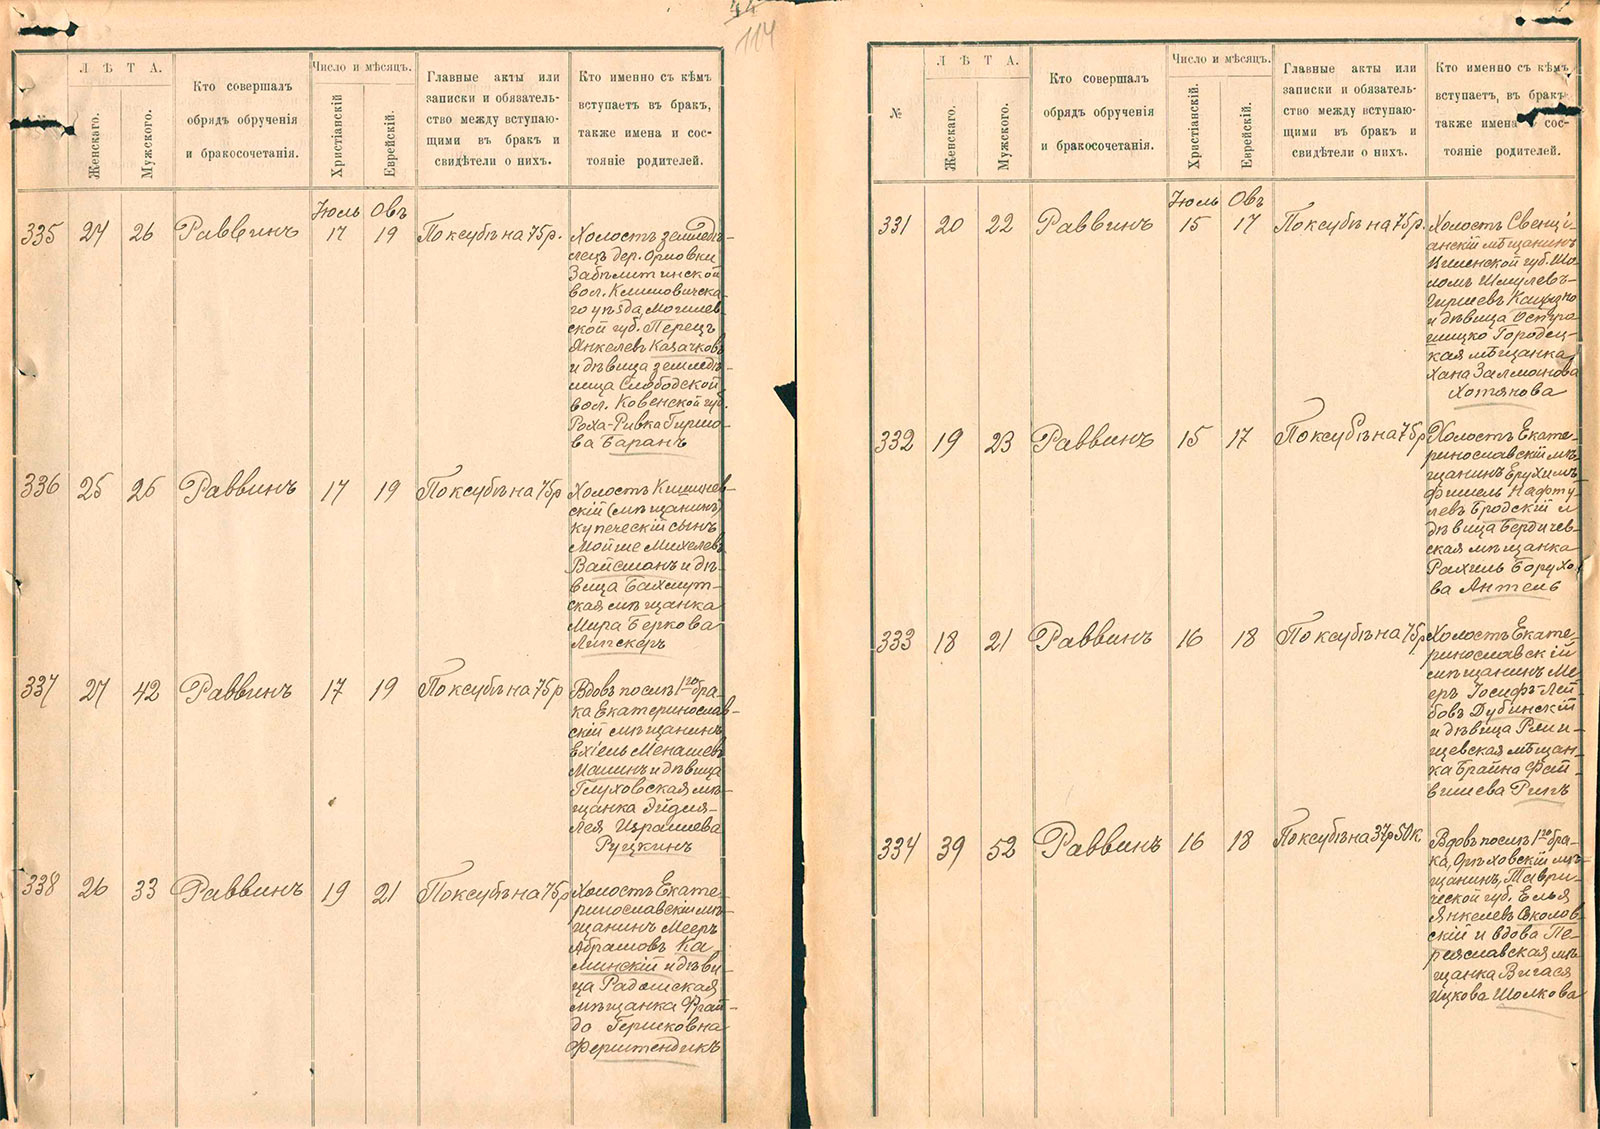 44
114
Л Ѣ Т А.
Женскаго.
Мужского.
Кто совершалъ
обрядъ обрученія
и бракосочетанія.
Число и мѣсяцъ.
Христіанскій
Еврейскій.
Главные акты или
записки и обязатель-
ство между вступаю-
щими въ бракъ и
свидѣтели о нихъ.
Кто именно съ кѣмъ
вступаетъ въ бракъ,
также имена и сос-
тояніе родителей.
Іюль Овъ
335 24 26 Раввинъ 17 19 По ксубѣ на 75 р.
Холостъ земледѣ-
лецъ дер. Орловки
Забѣлитинской
вол. Климовичска-
го уѣзда, Могилев-
ской губ. Перецъ
Янкелевъ Казачковъ
и дѣвица землѣдѣ-
лица Слободской
вол. Ковенской губ.
Роха-Ривка Гиршо-
ва Баранъ
336 25 26 Раввинъ 17 19 По ксубѣ на 75 р
Холостъ Кишинев-
скій (мѣщанинъ)
купеческій сынъ
Мойше Михелевъ
Вайсманъ и дѣ-
вица Бахмут-
ская мѣщанка
Мира Беркова
Липскеръ
337 27 42 Раввинъ 17 19 По ксубѣ на 75 р
Вдовъ послѣ 1го бра-
ка Екатеринослав-
скій мѣщанинъ
Ехіель Менашев
Машинъ и дѣвица
Глуховская мѣ-
щанка Эйдля-
Лея Израилева
Руцкинъ
338 26 33 Раввинъ 19 21 По ксубѣ на 75 р
Холостъ Екате-
ринославскій мѣ-
щанинъ Мееръ
Абрамовъ Ка-
минскій и дѣви-
ца Радошская
мѣщанка Фрей-
да Гершковна
Ферштендикъ
№
Л Ѣ Т А.
Женскаго.
Мужского.
Кто совершалъ
обрядъ обрученія
и бракосочетанія.
Число и мѣсяцъ.
Христіанскій.
Еврейскій.
Главные акты или
записки и обязатель-
ство между вступаю-
щими въ бракъ и
свидѣтели о нихъ.
Кто именно съ кѣмъ
вступаетъ, въ бракъ
также имена и сос-
тояніе родителей.
Іюль Овъ
331 20 22 Раввинъ 15 17 По ксубѣ на 75 р.
Холостъ Свенці-
анскій мѣщанинъ
Виленской губ. Шо-
ломъ Шмулевъ-
Гиршев
и дѣвица Остра-
шицко Городец-
кая мѣщанка
Хана Залманова
Хотянова
332 19 23 Раввинъ 15 17 По ксубѣ на 75 р
Холостъ Екате-
ринославскій мѣ-
щанинъ Ерухимъ
Фишель Нафту-
левъ Бродскій и
дѣвица Бердичев-
ская мѣщанка
Рахиль Борухо-
ва Антель
333 18 21 Раввинъ 16 18 По ксубѣ на 75 р
Холостъ Екате-
ринославскій
мѣщанинъ Ме-
еръ Іосифъ-Лей-
бовъ Дубинскій
и дѣвица Рѣчи-
щевская мѣщан-
ка Брайна Фай-
вишева Ринъ
334 39 52 Раввинъ 16 18 По ксубѣ на 37 р 50 к.
Вдовъ послѣ 1го бра-
ка, Орѣховскій мѣ-
щанинъ, Таври-
ческой губ. Елья
Янкелевъ Соколов-
скій и вдова Пе-
реяславская мѣ-
щанка Вигася
Ицкова Шолкова